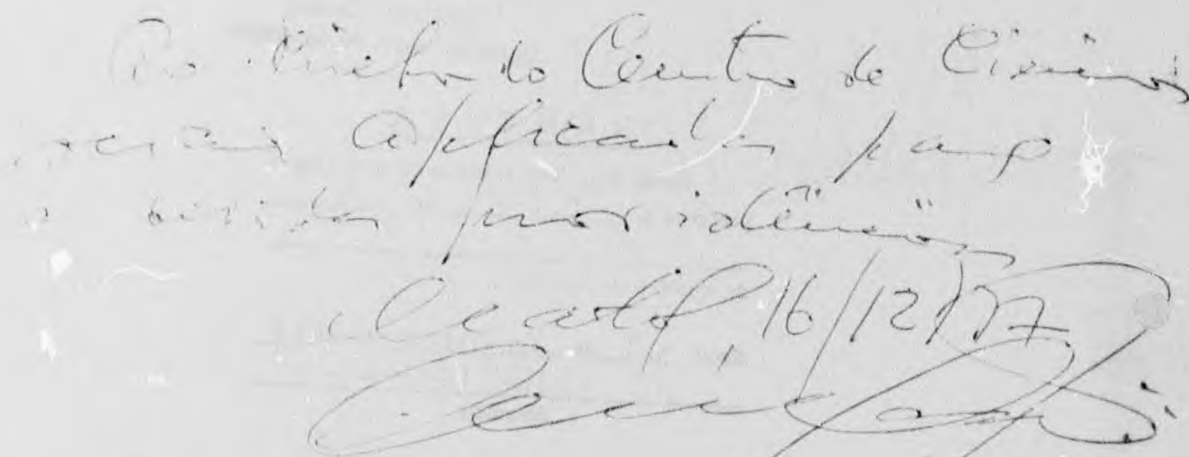 Ao Diretor do Centro de Ciências
Sociais Aplicadas para
as devidas providências
16/12/77